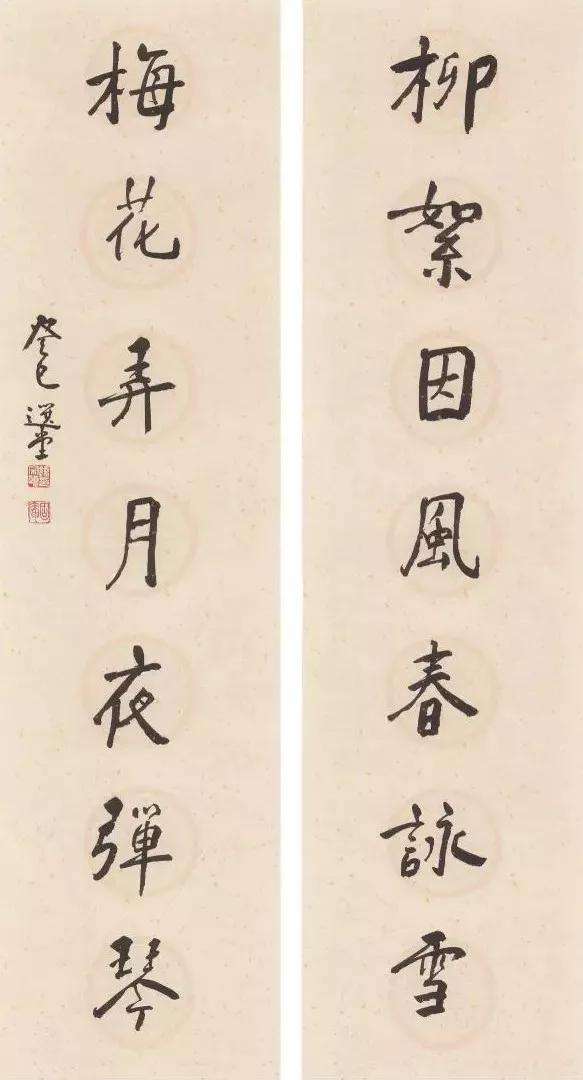 柳絮因風春詠雪
梅花弄月夜彈琴
癸巳選堂